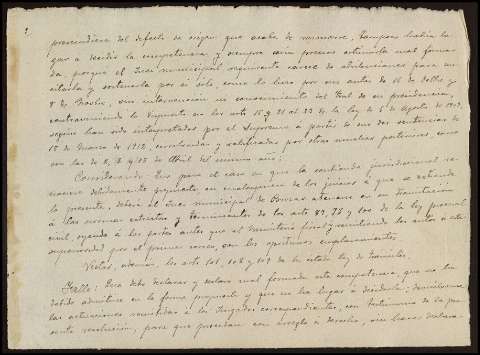 prescindiera del defecto de origen que acaba de enunciarse, tampoco habría lu-
gar a decidir la competencia y siempre sería preciso estimarla mal forma-
da, porque el Juez municipal requirente carece de atribuciones para sus-
citarla y sostenerla por sí solo, como lo hizo por sus autos de 16 de Julio y
8 de , sin intervención ni conocimiento del Tral. de su presidencia,
contraviniendo lo dispuesto en los arts. 18 y 21 al 23 de la ley de 5 de Agosto de 1907,
según han sido interpretados por el Supremo a partir de sus dos sentencias de
15 de Marzo de 1912, corroboradas y ratificadas por otras muchas posteriores, como
son las de 2, 3 y 15 de Abril del mismo año;
Considerando: Que para el caso en que la contienda jurisdiccional se
reserve debidamente propuesta, en cualquiera de los juicios a que se extiende
la presente, deberá el Juez municipal de atenerse en su tramitación
a las normas estrictas y terminantes de los arts. 89, 73 y 100 de la ley procesal
civil, oyendo a las partes antes que al Ministerio fiscal y remitiendo los autos a esta
superioridad por el primer correo, con los oportunos emplazamientos.
Vistos, además, los arts. 101, 108 y 109 de la citada ley de trámites.
Fallo: Que debo declarar y declaro mal formada esta competencia, que no ha
debido admitirse en la forma propuesta y que no ha lugar a decidirla; devuélvanse
las actuaciones remitidas a los Juzgados correspondientes, con testimonio de la pre-
sente resolución, para que procedan con arreglo a derecho, sin hacer declara-